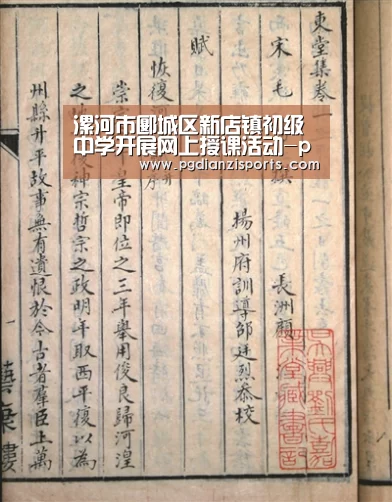 漯河市郾城区新店镇初级
中学开展网上授课活动-p
www.pgdianzisports.com
東堂集卷一
宋毛 長洲顧
揚州府訓導邵廷烈恭校
賦
恢復河
崇 皇帝即位之三年舉用俊良歸河湟
之 復神宗哲宗之政明年取西平復以為
州縣升平故事無有遺恨於今古者羣臣上萬
一
吳興劉氏嘉
業堂藏書印